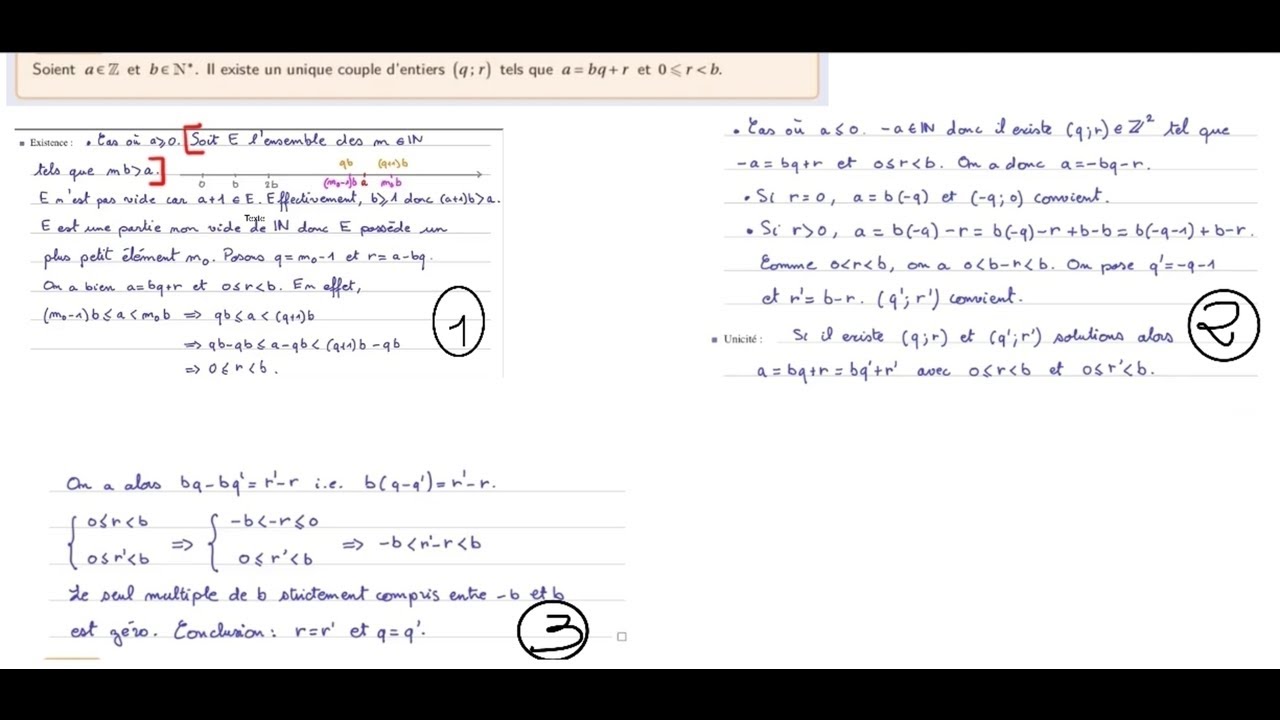 Soient a∈ℤ et b∈ℕ*. Il existe un unique couple d'entiers (q ; r) tels que a = bq + r et 0 ⩽ r < b.
▪ Existence : • Cas où a⩾0. [Soit E l'ensemble des m ∈ ℕ
tels que mb > a.]
qb (q+1)b
0 b 2b (m₀-1)b a m₀b
E n'est pas vide car a+1 ∈ E. Effectivement, b⩾1 donc (a+1)b > a.
Texte
E est une partie non vide de ℕ donc E possède un
plus petit élément m₀. Posons q = m₀-1 et r = a-bq.
On a bien a = bq+r et 0⩽r<b. En effet,
(m₀-1)b ⩽ a < m₀b ⇒ qb ⩽ a < (q+1)b
⇒ qb-qb ⩽ a-qb < (q+1)b-qb
⇒ 0 ⩽ r < b.
1
• Cas où a ⩽ 0. -a ∈ ℕ donc il existe (q;r) ∈ ℤ² tel que
-a = bq+r et 0⩽r<b. On a donc a = -bq-r.
• Si r = 0, a = b(-q) et (-q ; 0) convient.
• Si r>0, a = b(-q)-r = b(-q)-r+b-b = b(-q-1)+b-r.
Comme 0<r<b, on a 0<b-r<b. On pose q'=-q-1
et r'=b-r. (q';r') convient.
2
▪ Unicité : Si il existe (q;r) et (q';r') solutions alors
a = bq+r = bq'+r' avec 0⩽r<b et 0⩽r'<b.
On a alors bq-bq'=r'-r i.e. b(q-q')=r'-r.
{ 0⩽r<b ⇒ { -b<-r⩽0 ⇒ -b<r'-r<b
0⩽r'<b 0⩽r'<b
Le seul multiple de b strictement compris entre -b et b
est zéro. Conclusion : r=r' et q=q'.
3
□